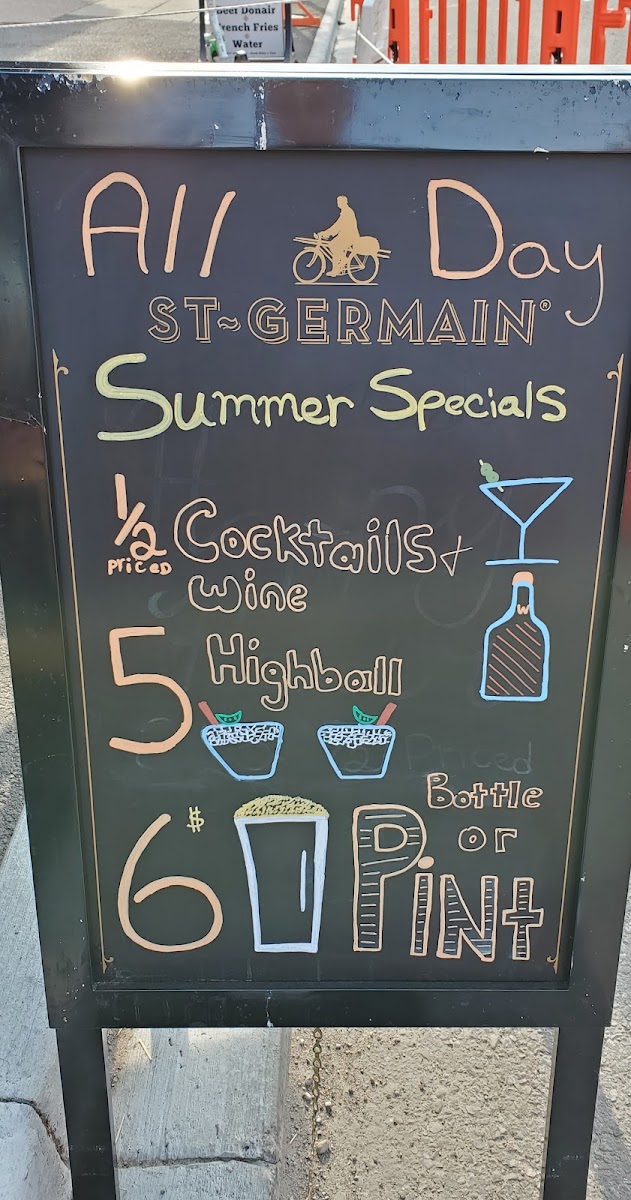 Beef Donair
French Fries
Water
All Day
ST~GERMAIN®
Summer Specials
1/2 Cocktails +
PricED wine
5 Highball
6$ Bottle
or
PiNt
W
Priced